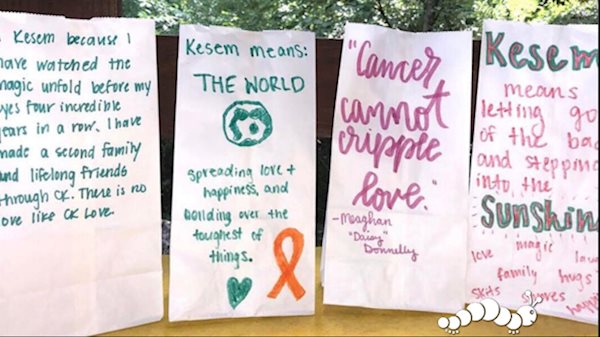 Kesem because I
have watched the
magic unfold before my
eyes four incredible
years in a row. I have
made a second family
and lifelong friends
through CK. There is no
love like CK Love.
Kesem means:
THE WORLD
spreading love +
happiness, and
bonding over the
toughest of
things.
"Cancer
cannot
cripple
love."
-Meaghan
"Daisy"
Donnelly
Kesem
means
letting go
of the bad
and stepping
into the
Sunshin
love magic lau
family hugs
skits s'mores happi